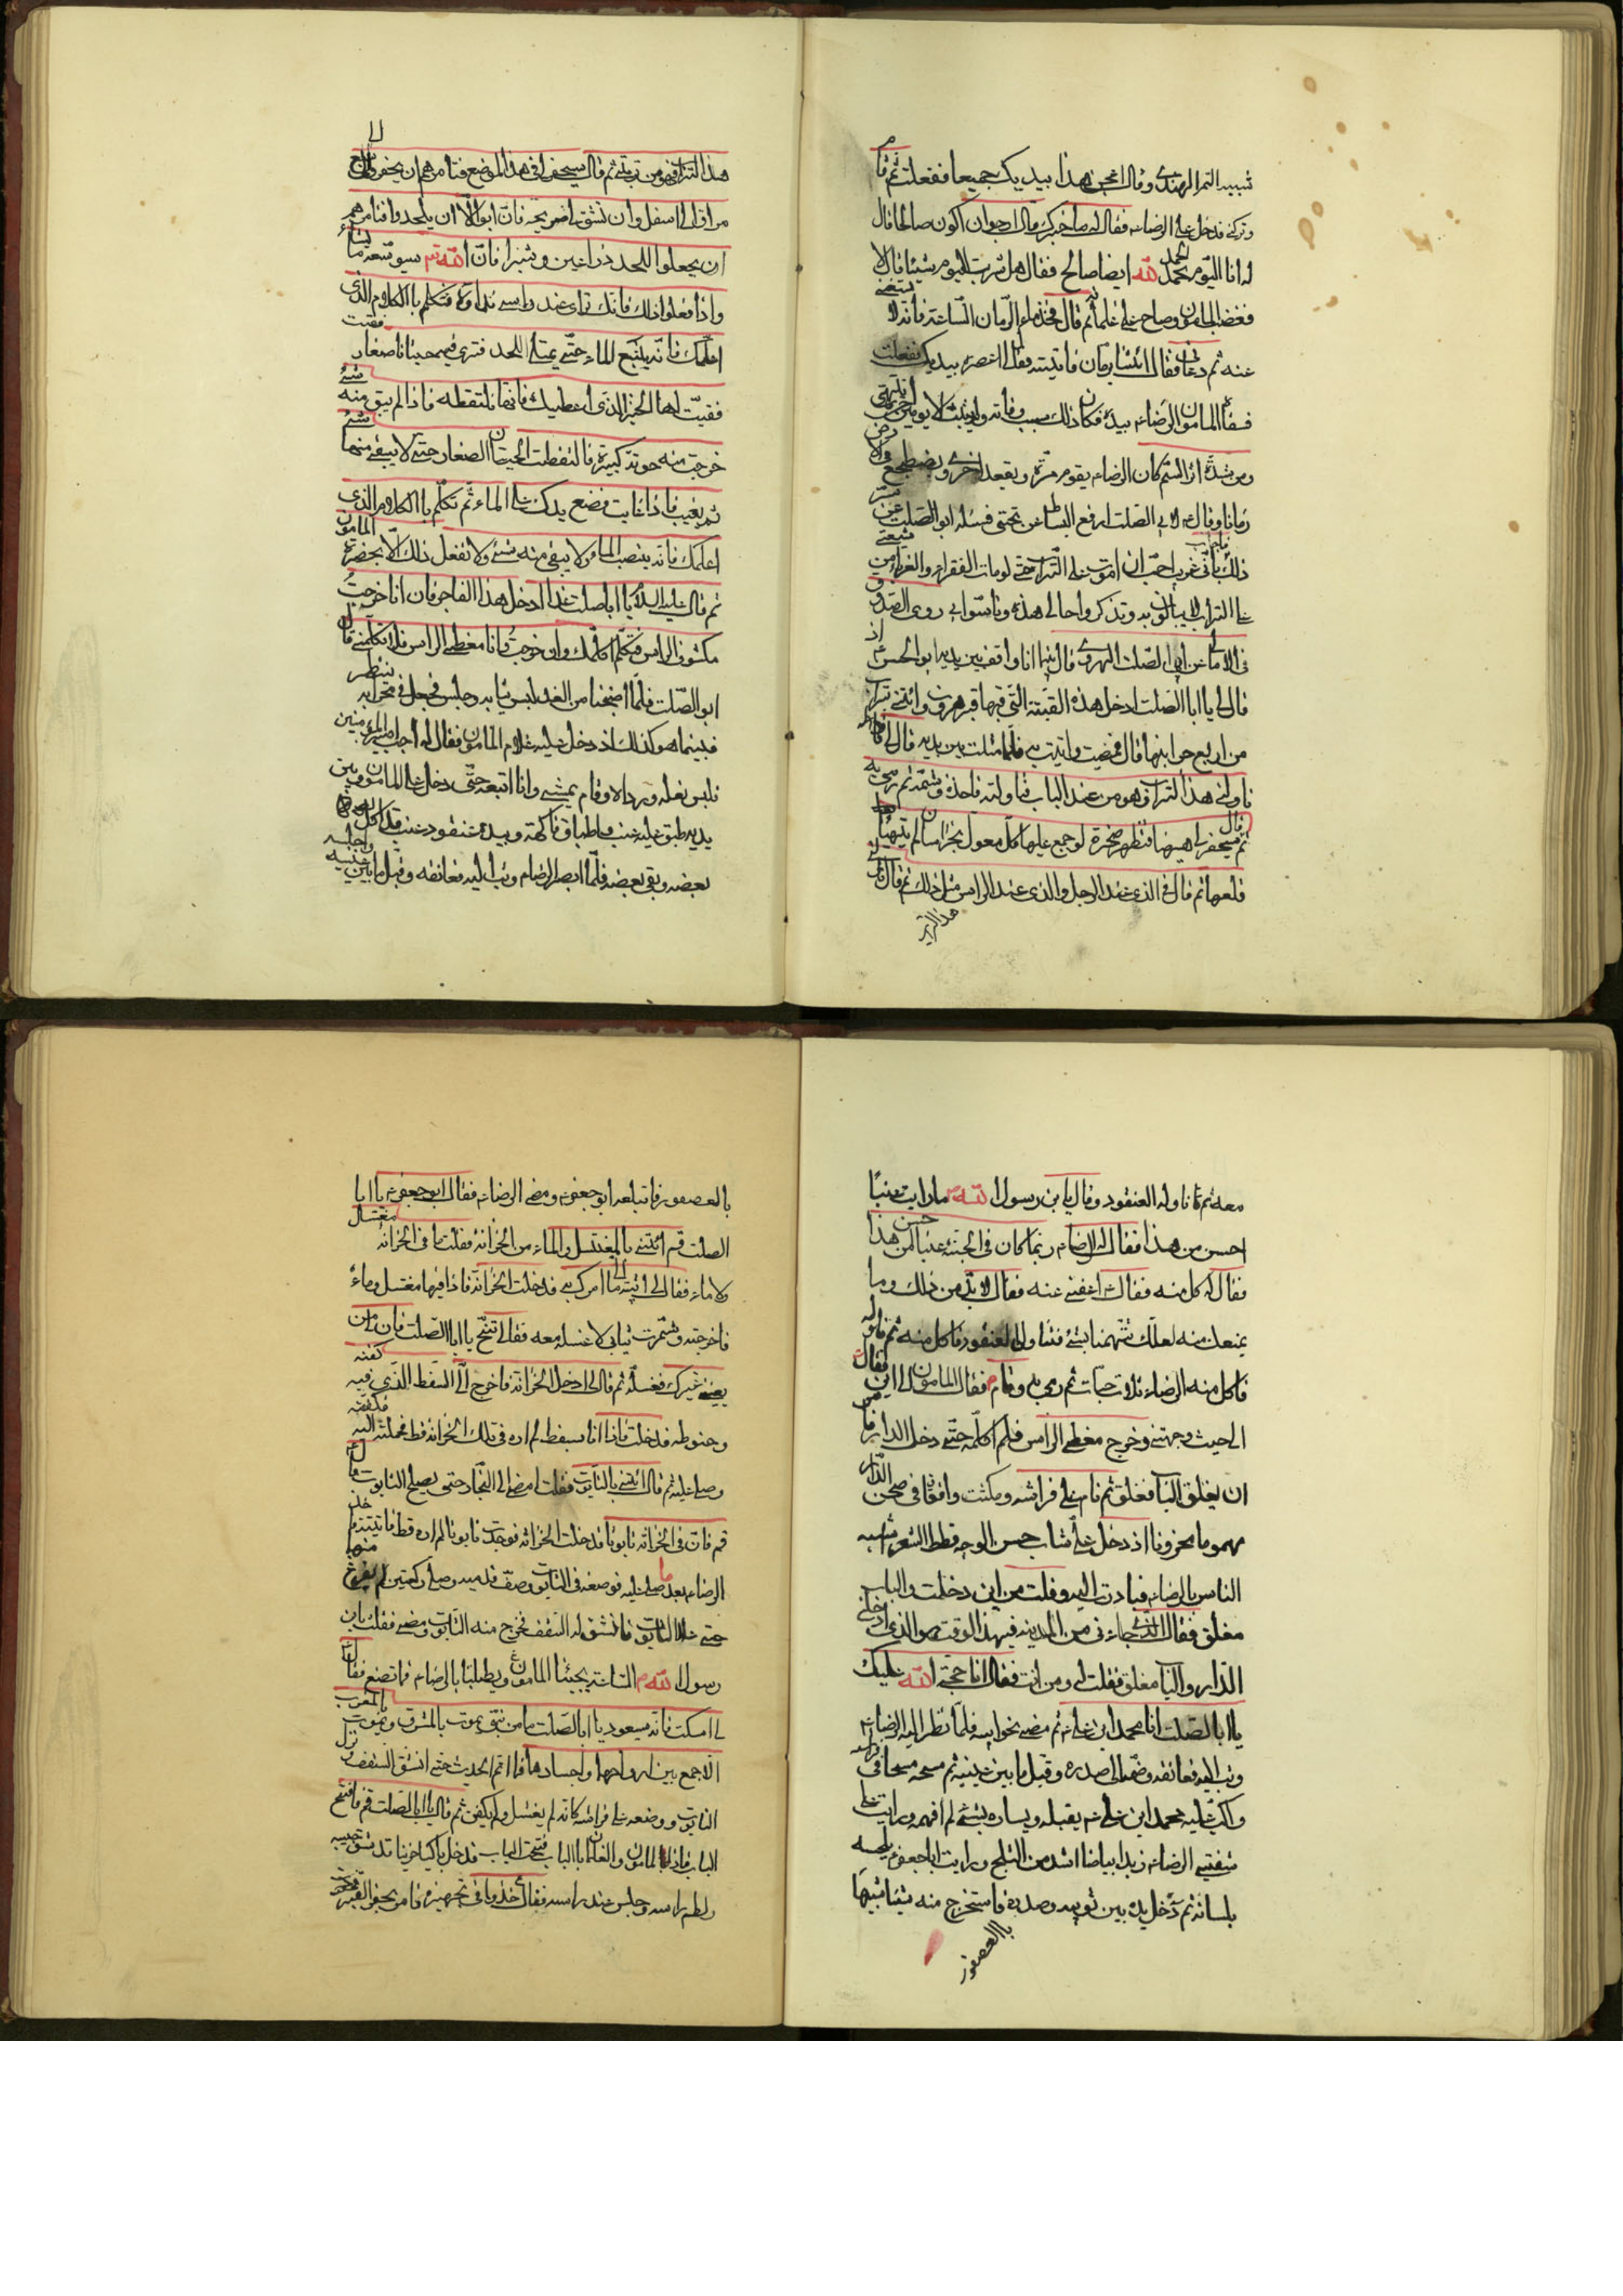 شبيه التمر الهندي وقال اعجن هذا بيديك جميعا ففعلت ثم قام
وتركني فدخل على الرضا ع فقال له ما خبرك قال ارجو ان اكون صالحا قال
له انا اليوم بحمد الله ايضا صالح فقال هل شرب اليوم شيئا قال لا
فغضب المامون وصاح على غلمانه ثم قال فخذ ماء الرمان الساعة فانه لا يستغنى
عنه ثم دعاني فقال ائتنا برمان فاتيته فقال اعصره بيديك ففعلت
فسقاه المامون الرضا ع بيده فكان ذلك سبب وفاته ولم يلبث الا يومين
ومن شدة اثر السم كان الرضا ع يقوم مرة ويقعد اخرى ويضطجع في الارض
زمانا وقال لابي الصلت ارفع البساط من تحتي فسئله ابو الصلت عن سر
ذلك فاجاب باني غريب احب ان اموت على التراب حتى لو مات الفقراء والغرباء من شيعتي
على التراب لا يبالون به وتذكروا حالي هذه وتاسوا بي روى الصدوق
في الامالي عن ابي الصلت الهروي قال بينما انا واقف بين يدي ابو الحسن ع اذ
قال لي يا ابا الصلت ادخل هذه القبة التي فيها قبر هرون وائتني بتراب
من اربع جوانبها قال فمضيت واتيت به فلما مثلت بين يديه قال لي
ناولني هذا التراب وهو من عند الباب فناولته فاخذه وشمه ثم رمى به
ثم قال سيحفر لي ههنا فتظهر صخرة لو جمع عليها كل معول بخراسان لم يتهيا
قلعها ثم قال في الذي عند الرجل والذي عند الراس مثل ذلك ثم قال ناولني
هذا التر
هذا التراب فهو من تربتي ثم قال سيحفر لي في هذا الموضع فتامرهم ان يحفروا لي سبع
مراقي الى اسفل وان تشق لي ضريحة فان ابوا الا ان يلحدوا فتامرهم
ان يجعلوا اللحد ذراعين وشبرا فان الله تع سيوسعه ما يشاء
واذا فعلوا ذلك فانك ترى عند راسي نداوة فتكلم باالكلام الذي
اعلمك فانه ينبع الماء حتى يمتلئ اللحد فترى فيه حيتانا صغارا
ففتت لها الخبز الذي اعطيك فانها تلتقطه فاذا لم يبق منه شئ
خرجت منه حوتة كبيرة فالتقطت الحيتان الصغار حتى لا يبقى منها شئ
ثم يغيب فاذا غابت فضع يدك على الماء ثم تكلم باالكلام الذي
اعلمك فانه ينصب الماء ولا يبقى منه شئ ولا تفعل ذلك الا بحضرة المامون
ثم قال عليه السلام يا اباصلت غدا ادخل هذا الفاجر فان انا خرجت
مكشوف الراس فتكلم اكلمك وان خرجت وانا مغطى الراس فلا تكلمني قال
ابو الصلت فلما اصبحنا من الغد لبس ثيابه وجلس فجعل في محرابه ينتظر
فبينما هو كذلك اذ دخل عليه غلام المامون فقال له اجب امير المؤمنين
فلبس نعله ورداه وقام يمشي وانا اتبعه حتى دخل على المامون وبين
يديه طبق عليه عنب واطباق فاكهة وبيده عنقود عنب قد اكل
بعضه وبقي بعضه فلما ابصر الرضا ع وثب اليه فعانقه وقبل ما بين عينيه واجلسه
معه ثم ناوله العنقود وقال يا بن رسول الله ص ما رايت عنبا
احسن من هذا فقال له الرضا ع ربما كان في الجنة عنبا احسن من هذا
فقال له كل منه فقال ع اعفني عنه فقال لا بد من ذلك وما
يمنعك منه لعلك تتهمنا بشئ فتناول العنقود فاكل منه ثم ناوله
فاكل منه الرضا ع ثلاث حبات ثم رمى به وقام فقال المامون الى اين فقال
الى حيث وجهتني وخرج مغطى الراس فلم اكلمه حتى دخل الدار فامر
ان يغلق الباب فغلق ثم نام على فراشه ومكثت واقفا في صحن الدار
مهموما محزونا اذ دخل علي شاب حسن الوجه قطط الشعر اشبه
الناس بالرضا ع فبادرت اليه وقلت من اين دخلت والباب
مغلق فقال الذي جاء بي من المدينة في هذا الوقت هو الذي ادخلني
الدار والباب مغلق فقلت له ومن انت فقال انا حجة الله عليك
يا ابا الصلت انا محمد ابن علي ع ثم مضى نحو ابيه فلما نظر اليه الرضا ع
وثب اليه فعانقه وضمه الى صدره وقبل ما بين عينيه ثم سحبه سحبا في فراشه
واكب عليه محمد ابن علي ع يقبله ويساره بشئ لم افهمه ورايت على
شفتي الرضا ع زبدا بياضا اشد من الثلج ورايت اباجعفر ع يلحسه
بلسانه ثم ادخل يده بين ثوبيه وصدره فاستخرج منه شيئا شبيها
باالعصفور
بالعصفور فابتلعه ابو جعفر ع ومضى الرضا ع فقال ابو جعفر ع يا ابا
الصلت قم ائتني بالمغتسل والماء من الخزانة فقلت ما في الخزانة مغتسل
ولا ماء فقال لي ائته الى ما امرك به فدخلت الخزانة فاذا فيها مغتسل وماء
فاخرجته وشمرت ثيابي لاغسله معه فقال لي تنح يا ابا الصلت فان لي من
يعينني غيرك فغسله ثم قال لي ادخل الخزانة فاخرج الي السفط الذي فيه كفنه
وحنوطه فدخلت فاذا انا بسفط لم اره في تلك الخزانة قط فحملته اليه فكفنه
وصلى عليه ثم قال ائتني بالتابوت فقلت امضي الى النجار حتى يصلح التابوت قال ع
قم فان في الخزانة تابوتا فدخلت الخزانة فوجدت تابوتا لم اره قط فاتيته فاخذ
الرضا ع بعد ما صلى عليه فوضعه في التابوت وصف قدميه وصلى ركعتين لم يفرغ منها
حتى علا التابوت فانشق له السقف فخرج منه التابوت ومضى فقلت يا بن
رسول الله ص الساعة يجيئنا المامون ويطلبنا بالرضا ع فما تصنع فقال
لي اسكت فانه سيعود يا ابا الصلت ما من نبي يموت بالمشرق ويموت وصيه بالمغرب
الا جمع بين ارواحها واجسادها فما اتم الحديث حتى انشق السقف ونزل
التابوت ووضعه على فراشه كانه لم يغسل ولم يكفن ثم قال يا ابا الصلت قم فافتح
الباب فاذا المامون والغلمان بالباب ففتحت الباب فدخل باكيا حزينا قد شق جيبه
ولطم راسه وجلس عند راسه فقال خذوا في تجهيزه فامر بحفر القبر